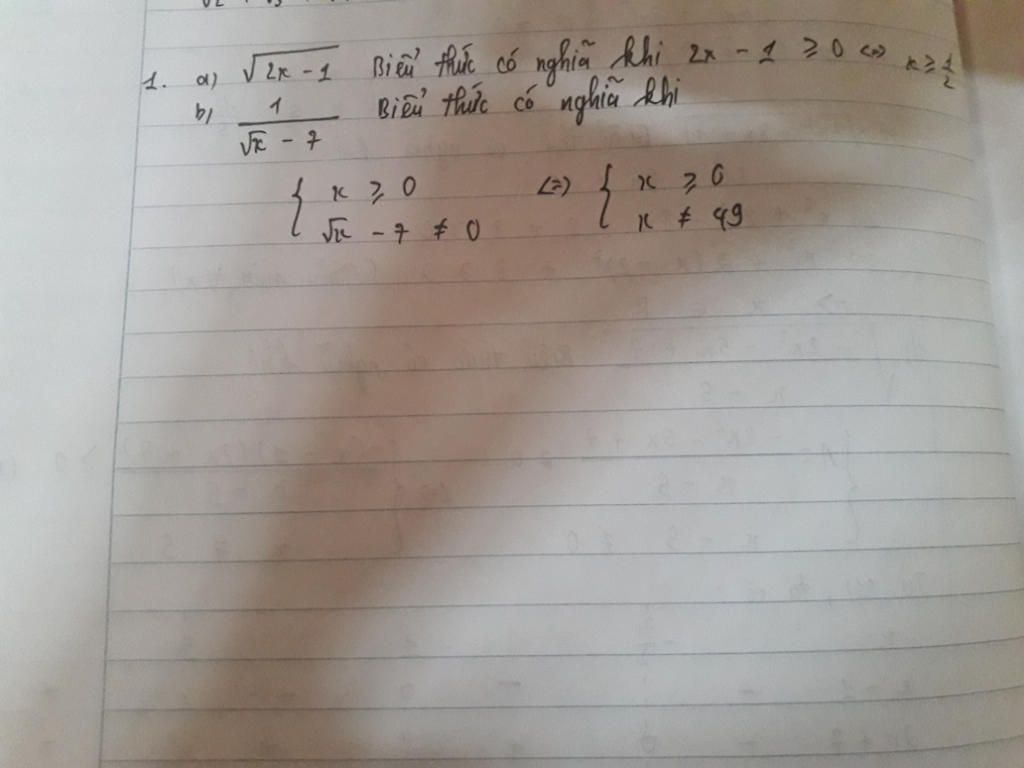 1. a) √2x - 1 Biểu thức có nghĩa khi 2x - 1 ≥ 0 <=> x ≥ 1/2
b) 1/(√x - 7) Biểu thức có nghĩa khi
{ x ≥ 0 <=> { x ≥ 0
√x - 7 ≠ 0 x ≠ 49